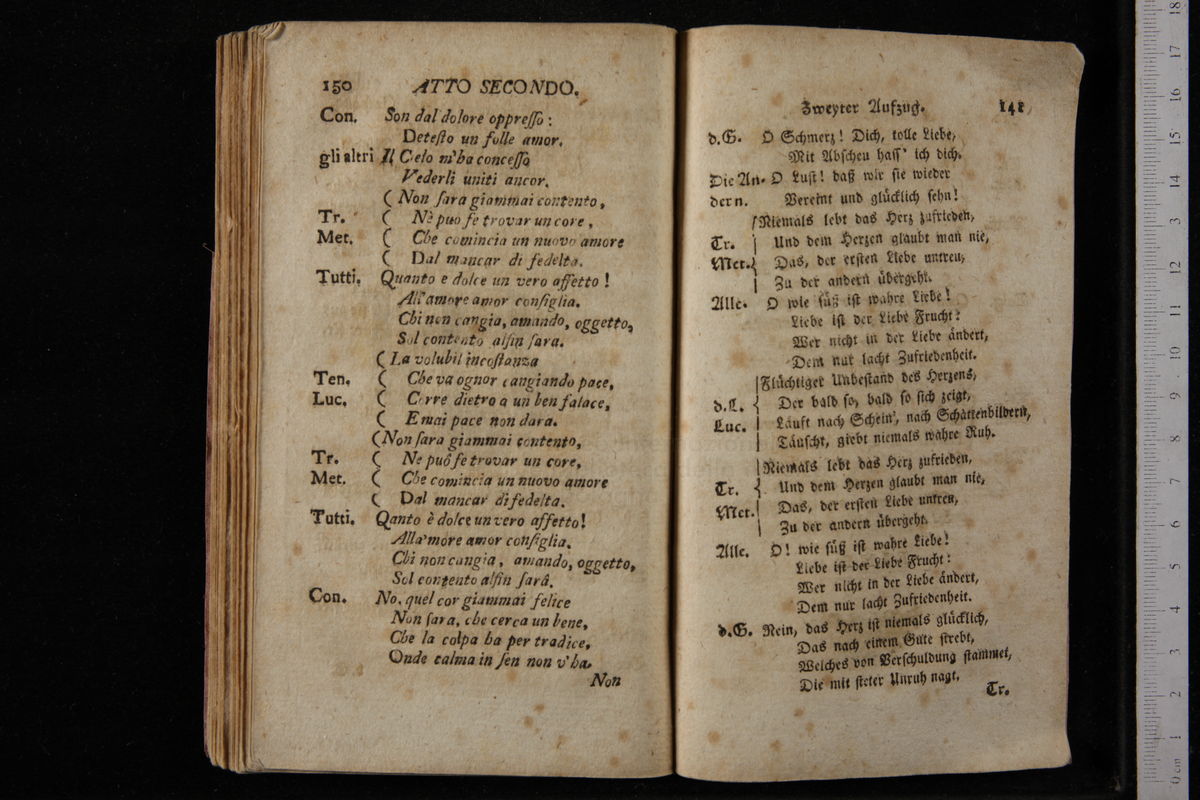 150 ATTO SECONDO.
Con. Son dal dolore oppresso :
Detesto un folle amor.
gli altri Il Cielo m'ha concesso
Vederli uniti ancor.
( Non sara giammai contento,
Tr. ( Nè puo fe trovar un core,
Met. ( Che comincia un nuovo amore
( Dal mancar di fedelta.
Tutti. Quanto e dolce un vero affetto !
All'amore amor consiglia.
Chi non cangia, amando, oggetto,
Sol contento alfin sara.
( La volubil incostanza
Ten. ( Che va ognor cangiando pace,
Luc. ( Corre dietro a un ben falace,
( E mai pace non dara.
( Non sara giammai contento,
Tr. ( Ne puó fe trovar un core,
Met. ( Che comincia un nuovo amore
( Dal mancar di fedelta.
Tutti. Qanto è dolce un vero affetto!
Alla'more amor consiglia.
Chi non cangia, amando, oggetto,
Sol contento alfin sará.
Con. No, quel cor giammai felice
Non sara, che cerca un bene,
Che la colpa ha per tradice,
Onde calma in sen non v'ha.
Non
Zweyter Aufzug. 141
d.G. O Schmerz! Dich, tolle Liebe,
Mit Abscheu hass' ich dich.
Die An- O Lust! daß wir sie wieder
dern. Vereint und glücklich sehn!
Niemals lebt das Herz zufrieden,
Tr. Und dem Herzen glaubt man nie,
Met. { Das, der ersten Liebe untreu,
Zu der andern übergeht.
Alle. O wie süß ist wahre Liebe!
Liebe ist der Liebe Frucht:
Wer nicht in der Liebe ändert,
Dem nur lacht Zufriedenheit.
Flüchtiger Unbestand des Herzens,
d.L. { Der bald so, bald so sich zeigt,
Luc. Läuft nach Schein', nach Schattenbildern,
Täuscht, giebt niemals wahre Ruh.
Niemals lebt das Herz zufrieden,
Tr. { Und dem Herzen glaubt man nie,
Met. Das, der ersten Liebe untreu,
Zu der andern übergeht.
Alle. O! wie süß ist wahre Liebe!
Liebe ist der Liebe Frucht:
Wer nicht in der Liebe ändert,
Dem nur lacht Zufriedenheit.
d.G. Nein, das Herz ist niemals glücklich,
Das nach einem Gute strebt,
Welches von Verschuldung stammet,
Die mit steter Unruh nagt.
Tr.
0 cm 1 2 3 4 5 6 7 8 9 10 11 12 13 14 15 16 17 18